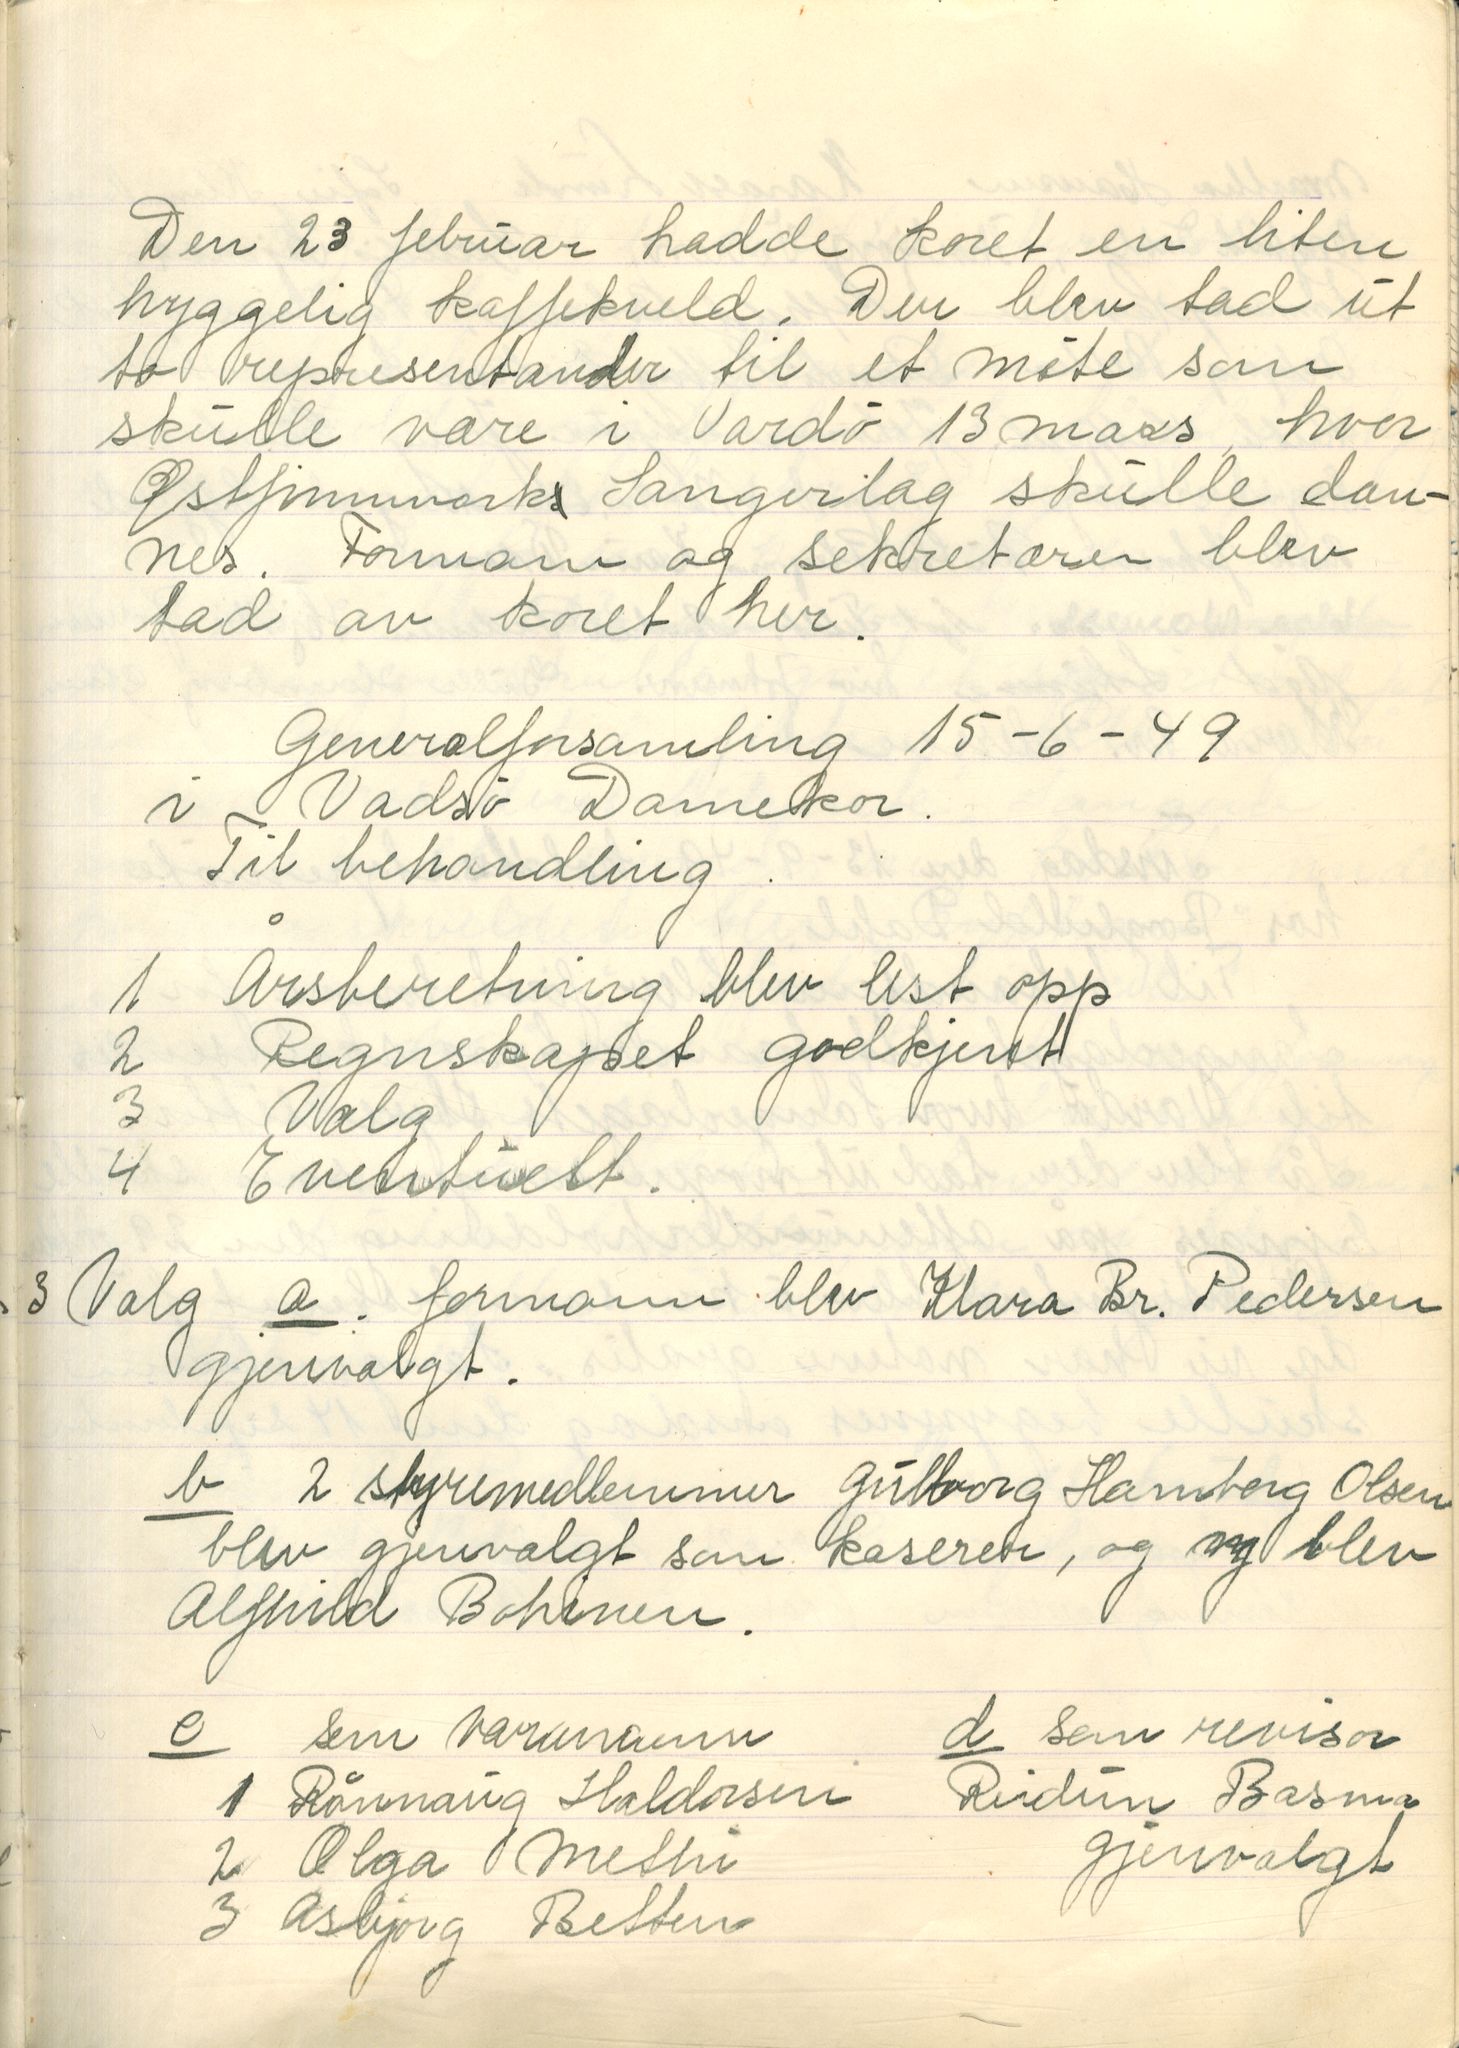 Den 23 februar hadde koret en liten
hyggelig kaffekveld. Der blev tad ut
to representander til et möte som
skulle være i Vardö 13 mars, hvor
Østfinnmarks Sangerlag skulle dan-
nes. Formann og sekretæren blev
tad av koret her.
Generalforsamling 15-6-49
i Vadsö Damekor.
Til behandling.
1 Årsberetning blev lest opp
2 Regnskapet godkjent
3 Valg
4 Eventuelt.
3 Valg a. formann blev Klara Br. Pedersen
gjenvalgt.
b 2 styremedlemmer Gullborg Hamberg Olsen
blev gjenvalgt som kaserer, og ny blev
Alfhild Bohinen.
c som varamann
1 Rönnaug Haldorsen
2 Olga Methi
3 Asbjørg Betten
d som revisor
Reidun Basma
gjenvalgt